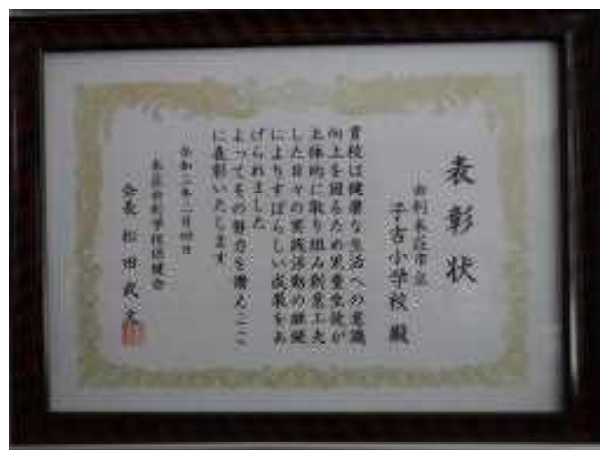 表彰状
由利本荘市立
子吉小学校 殿
貴校は健康な生活への意識
向上を図るため児童生徒が
主体的に取り組み創意工夫
した日々の実践活動の継続
によりすばらしい成果をあ
げられました
よってその努力を讃えここ
に表彰いたします
令和二年二月四日
本荘由利学校保健会
会長 松田武文